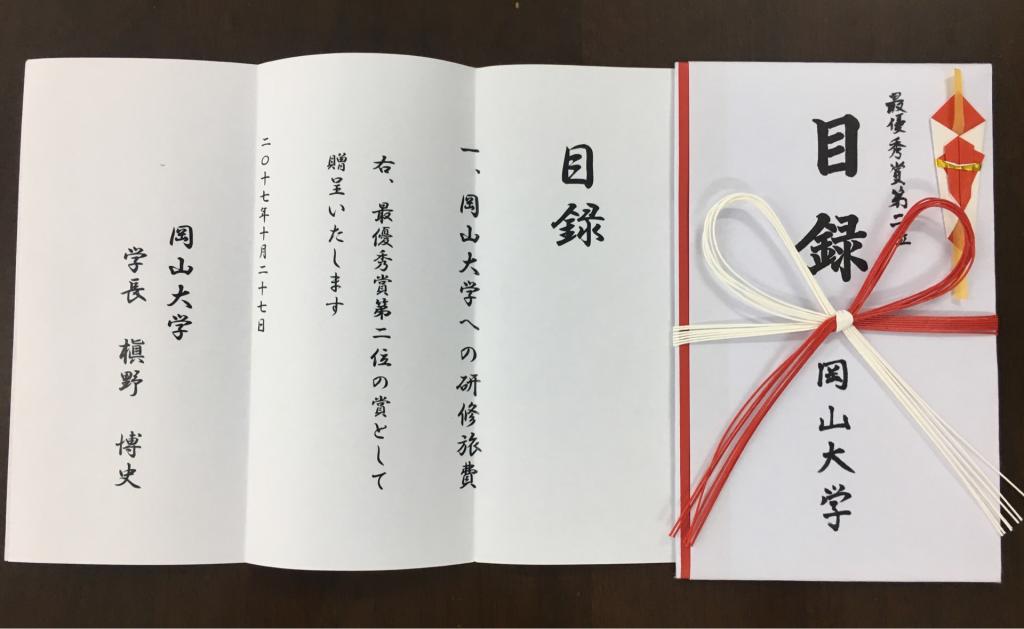 最優秀賞第二位
目録
岡山大学
目録
一、岡山大学への研修旅費
右、最優秀賞第二位の賞として
贈呈いたします
二〇十七年十月二十七日
岡山大学
学長 槇野 博史